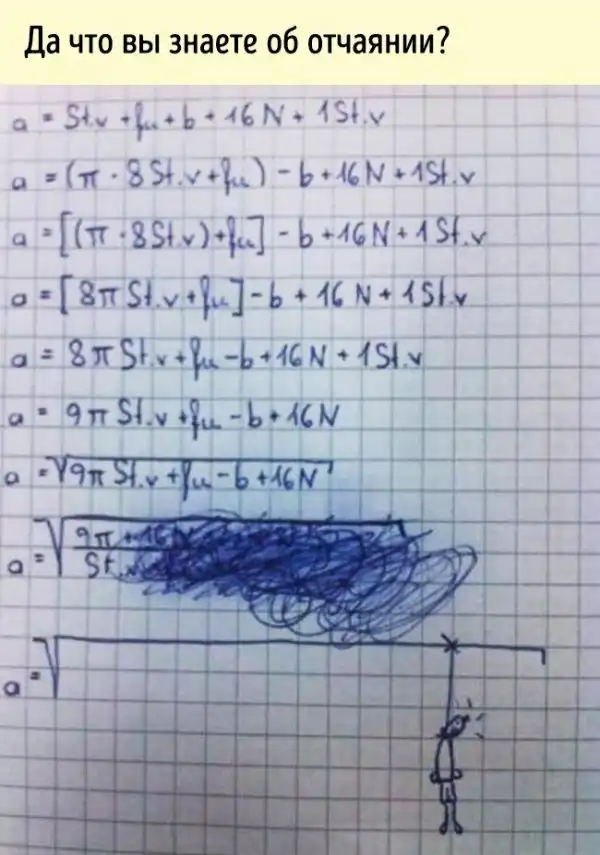 Да что вы знаете об отчаянии?
a = St.v + fu + b + 16N + 1St.v
a = (π · 8St.v + fu) - b + 16N + 1St.v
a = [(π · 8St.v) + fu] - b + 16N + 1St.v
a = [8π St.v + fu] - b + 16N + 1St.v
a = 8π St.v + fu - b + 16N + 1St.v
a = 9π St.v + fu - b + 16N
a = √9π St.v + fu - b + 16N
a = √ 9π + 16N
St.
a = √